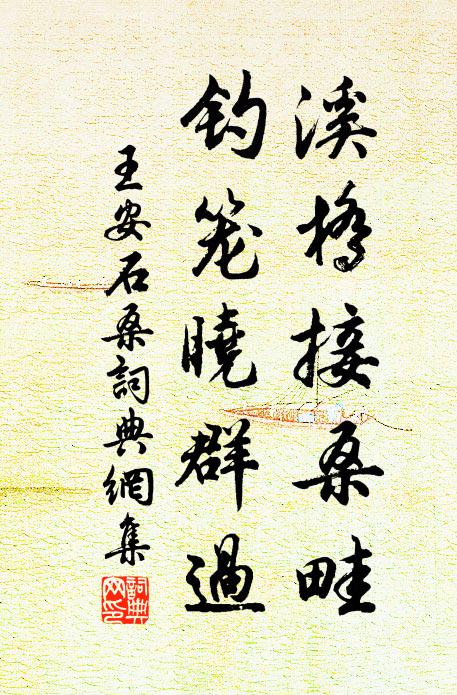 溪橋接桑畦
钓笼曉群過
王安石桑詞典網集
詞典网印